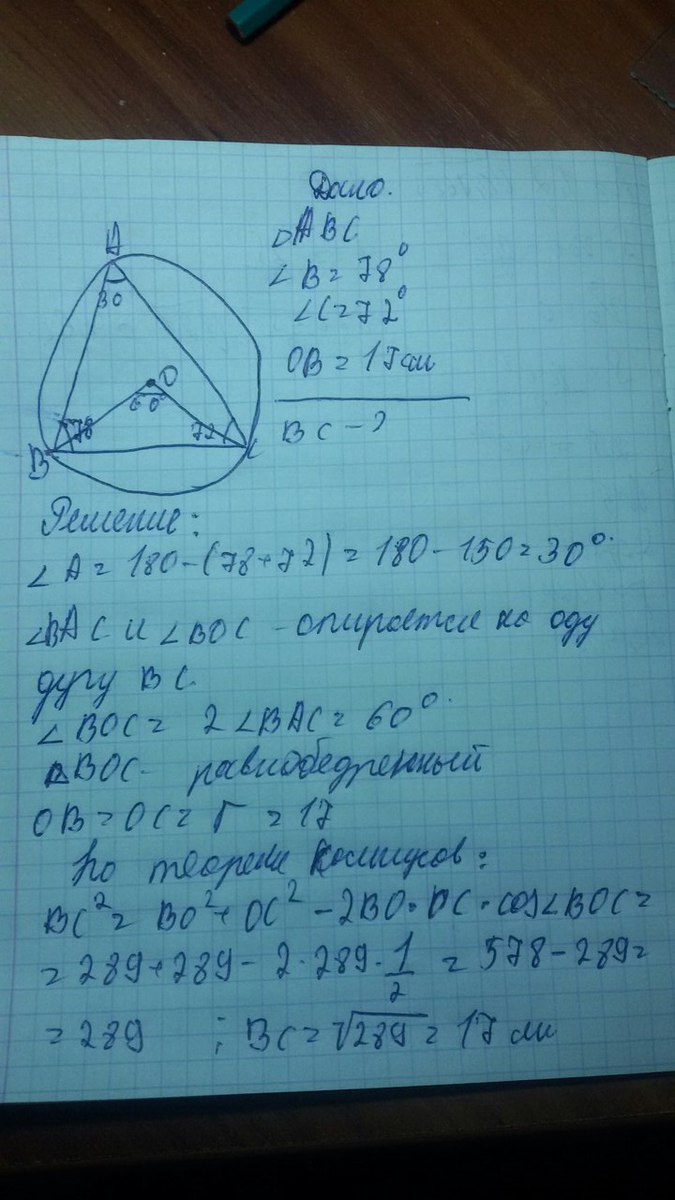 Дано.
△ABC
∠B=78°
∠C=72°
OB = 17см
BC - ?
A
30
O
60°
78
72
B
C
Решение:
∠A = 180-(78+72) = 180-150=30°.
∠BAC и ∠BOC - опирается на оду
дугу BC.
∠BOC = 2∠BAC = 60°.
△BOC - равнобедренный
OB=OC= r = 17
По теореме косинусов:
BC²= BO²+OC²-2BO·OC·cos∠BOC=
=289+289-2·289·1/2 = 578-289=
=289 ; BC=√289=17 см